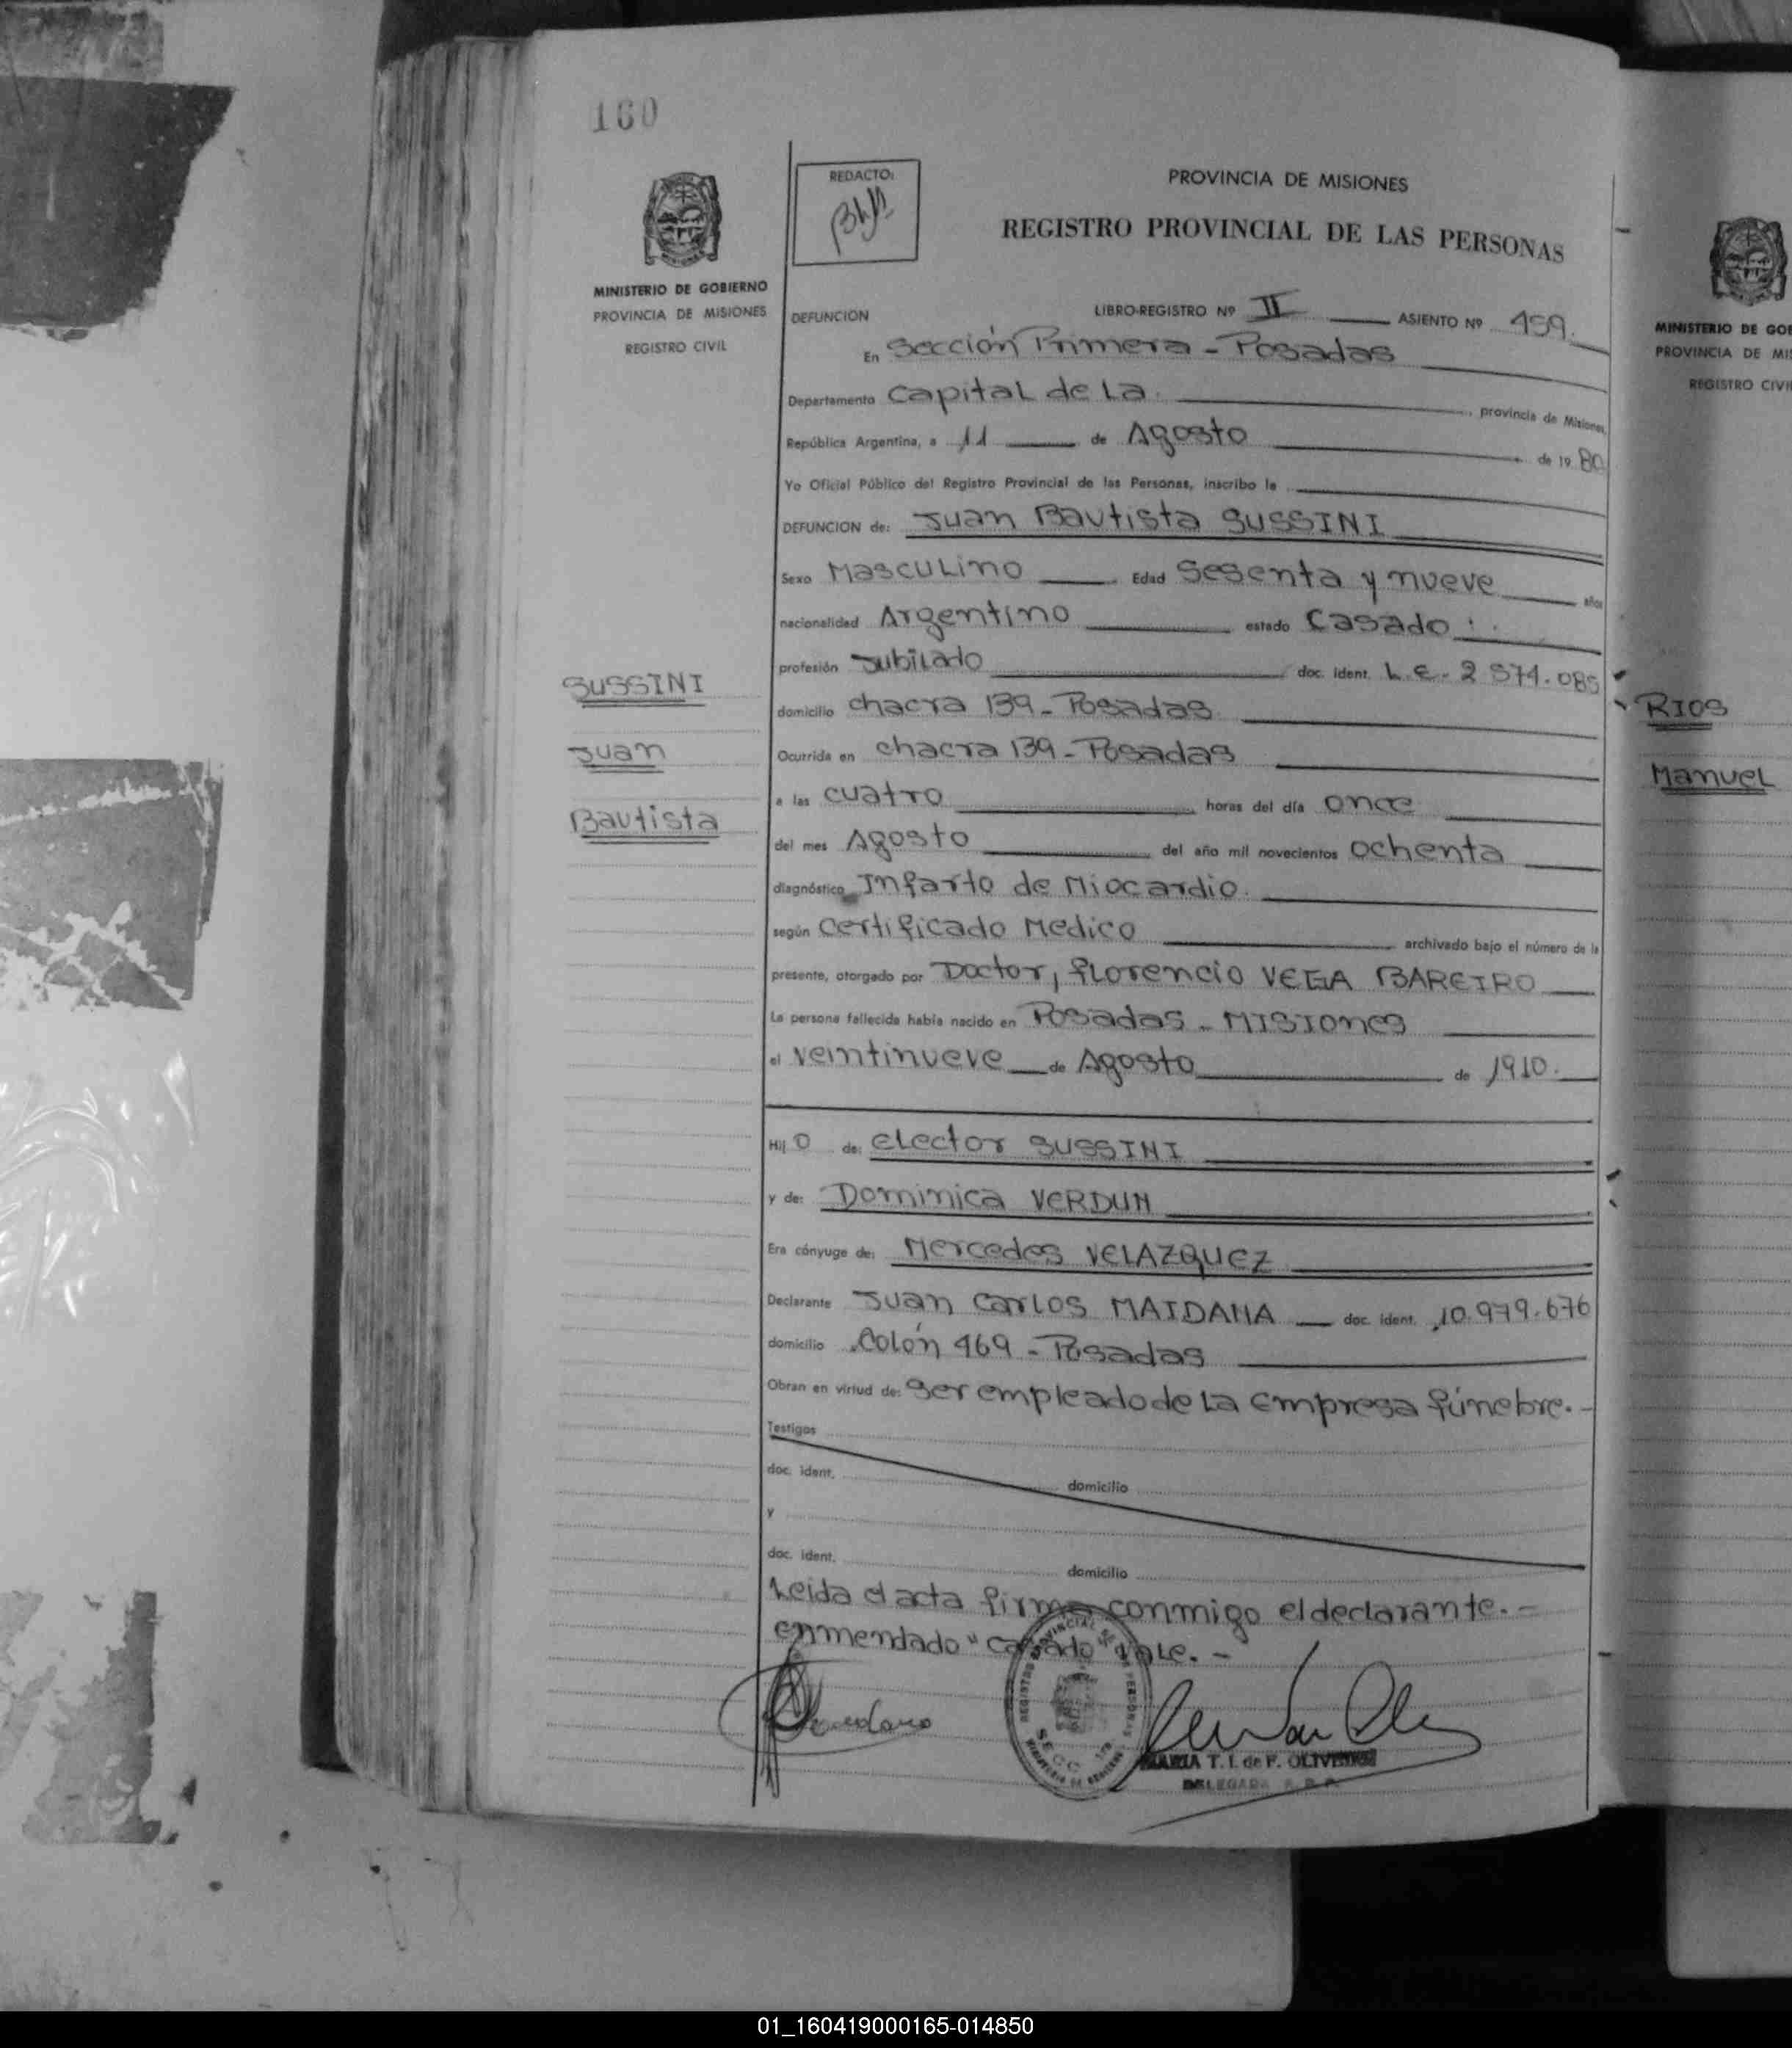 160
REDACTO:
PROVINCIA DE MISIONES
REGISTRO PROVINCIAL DE LAS PERSONAS
MINISTERIO DE GOBIERNO
PROVINCIA DE MISIONES
REGISTRO CIVIL
DEFUNCION LIBRO-REGISTRO Nº II ASIENTO Nº 459.
En Sección Primera - Posadas
Departamento Capital de La provincia de Misiones,
República Argentina, a 11 de Agosto de 19 80
Yo Oficial Público del Registro Provincial de las Personas, inscribo la
DEFUNCION de: Juan Bautista SUSSINI
Sexo Masculino Edad Sesenta y nueve años
nacionalidad Argentino estado Casado
profesión Jubilado doc. ident. L.E. 2 574.085
domicilio chacra 139 - Posadas
Ocurrida en chacra 139 - Posadas
a las cuatro horas del día once
del mes Agosto del año mil novecientos ochenta
diagnóstico Infarto de Miocardio.
según Certificado Medico archivado bajo el número de la
presente, otorgado por Doctor, Florencio VEGA BAREIRO
La persona fallecida había nacido en Posadas - Misiones
el veintinueve de Agosto de 1910.
Hij o de: Elector SUSSINI
y de: Dominica VERDUN
Era cónyuge de: Mercedes VELAZQUEZ
Declarante Juan Carlos MAIDANA doc. ident. 10.979.676
domicilio Colón 469 - Posadas
Obran en virtud de: Ser empleado de La Empresa fúnebre. -
Testigos
doc. ident. domicilio
y
doc. ident. domicilio
Leida el acta firma conmigo el declarante. -
enmendado "casado" vale. -
SUSSINI
Juan
Bautista
MARIA T. I. de F.
DELEGADA
MINISTERIO DE GOB
PROVINCIA DE MIS
REGISTRO CIVI
RIOS
Manuel
01_160419000165-014850